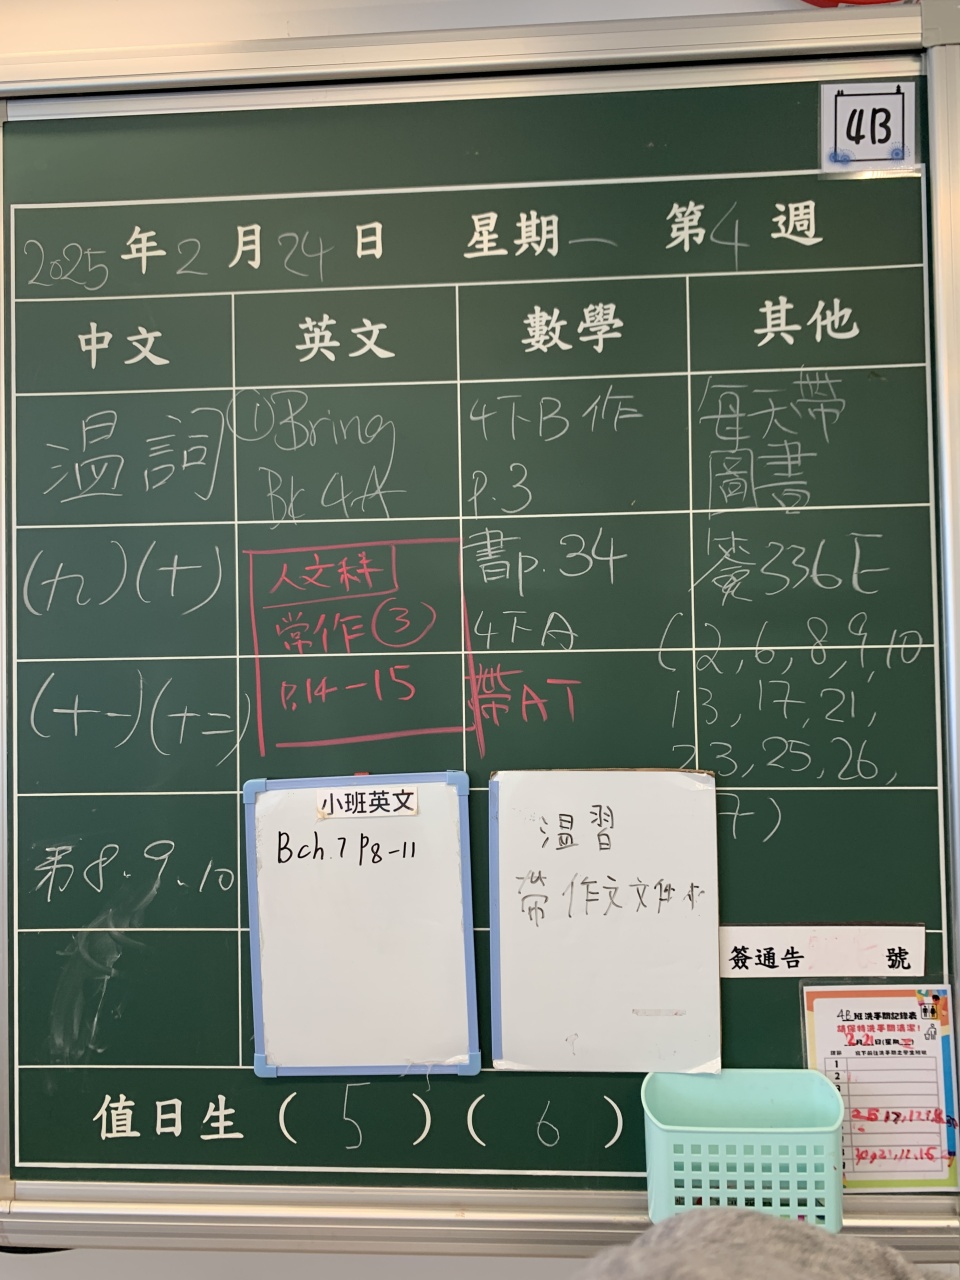 4B
2025年2月24日 星期一 第4週
中文 英文 數學 其他
温詞
(九)(十)
(十一)(十二)
第8.9.10
①Bring
BK4A
人文科
常作③
P.14-15
4下B作
P.3
書p.34
4下A
帶AT
每天帶
圖書
簽336E
(2,6,8,9,10
13,17,21,
23,25,26,
7)
小班英文
Bch.7 P8-11
温習
帶 作文文件
簽通告 號
4B班洗手間記錄表
請保持洗手間清潔!
2月21日(星期
1
2
值日生(5)(6)